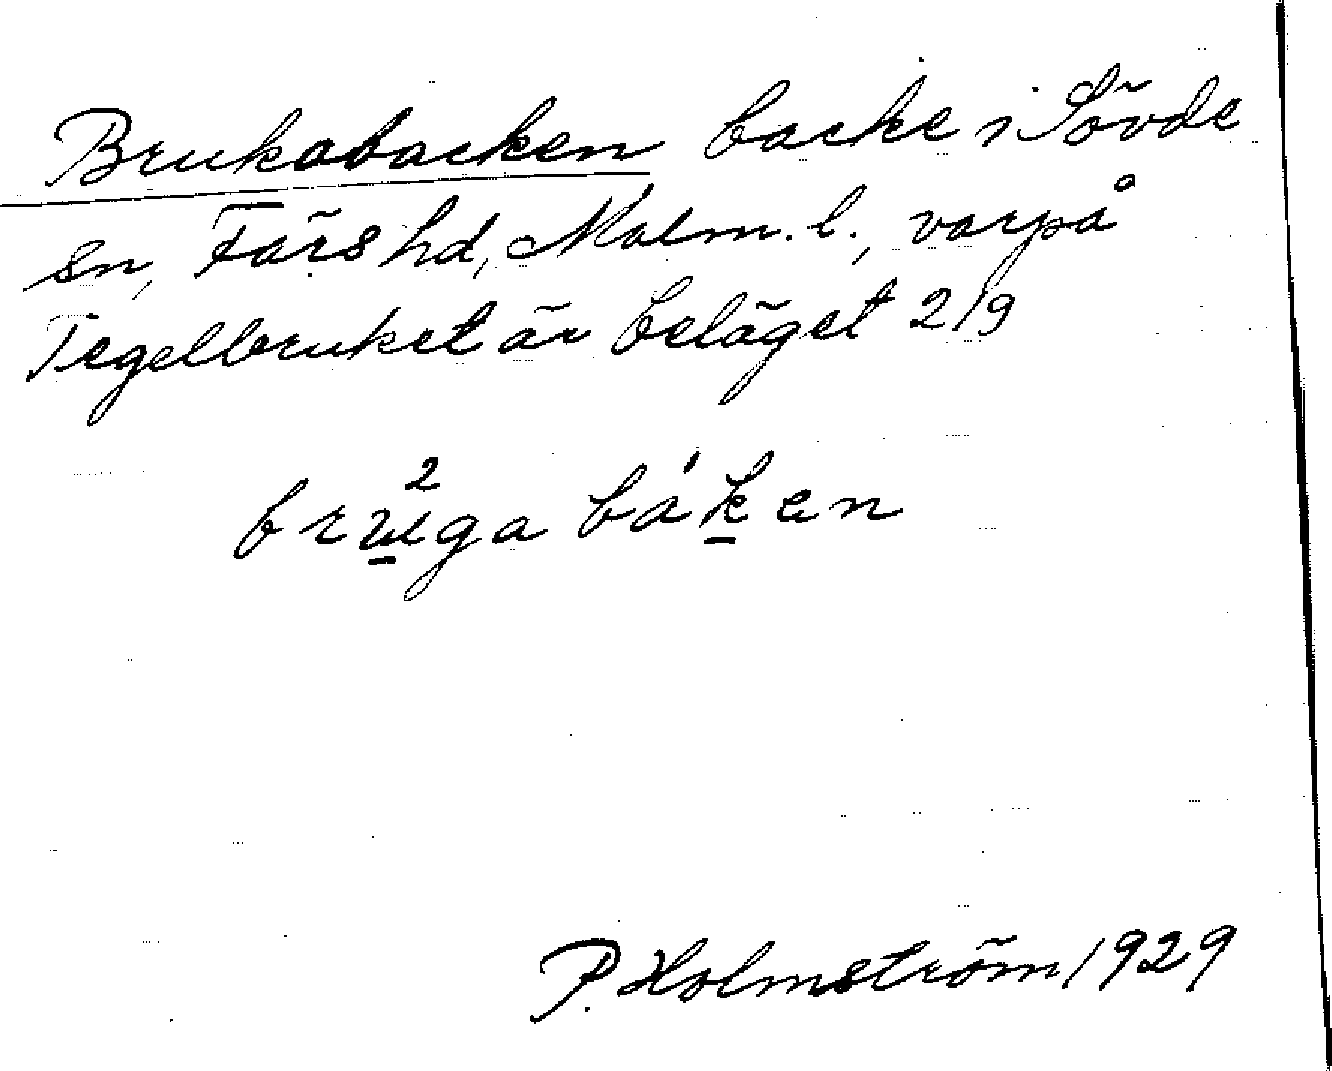 Brukabacken backe i Sövde
sn, Färs hd, Malm. l., varpå
Tegelbruket är beläget 2/9
bru²ga bá'ken
P. Holmström 1929